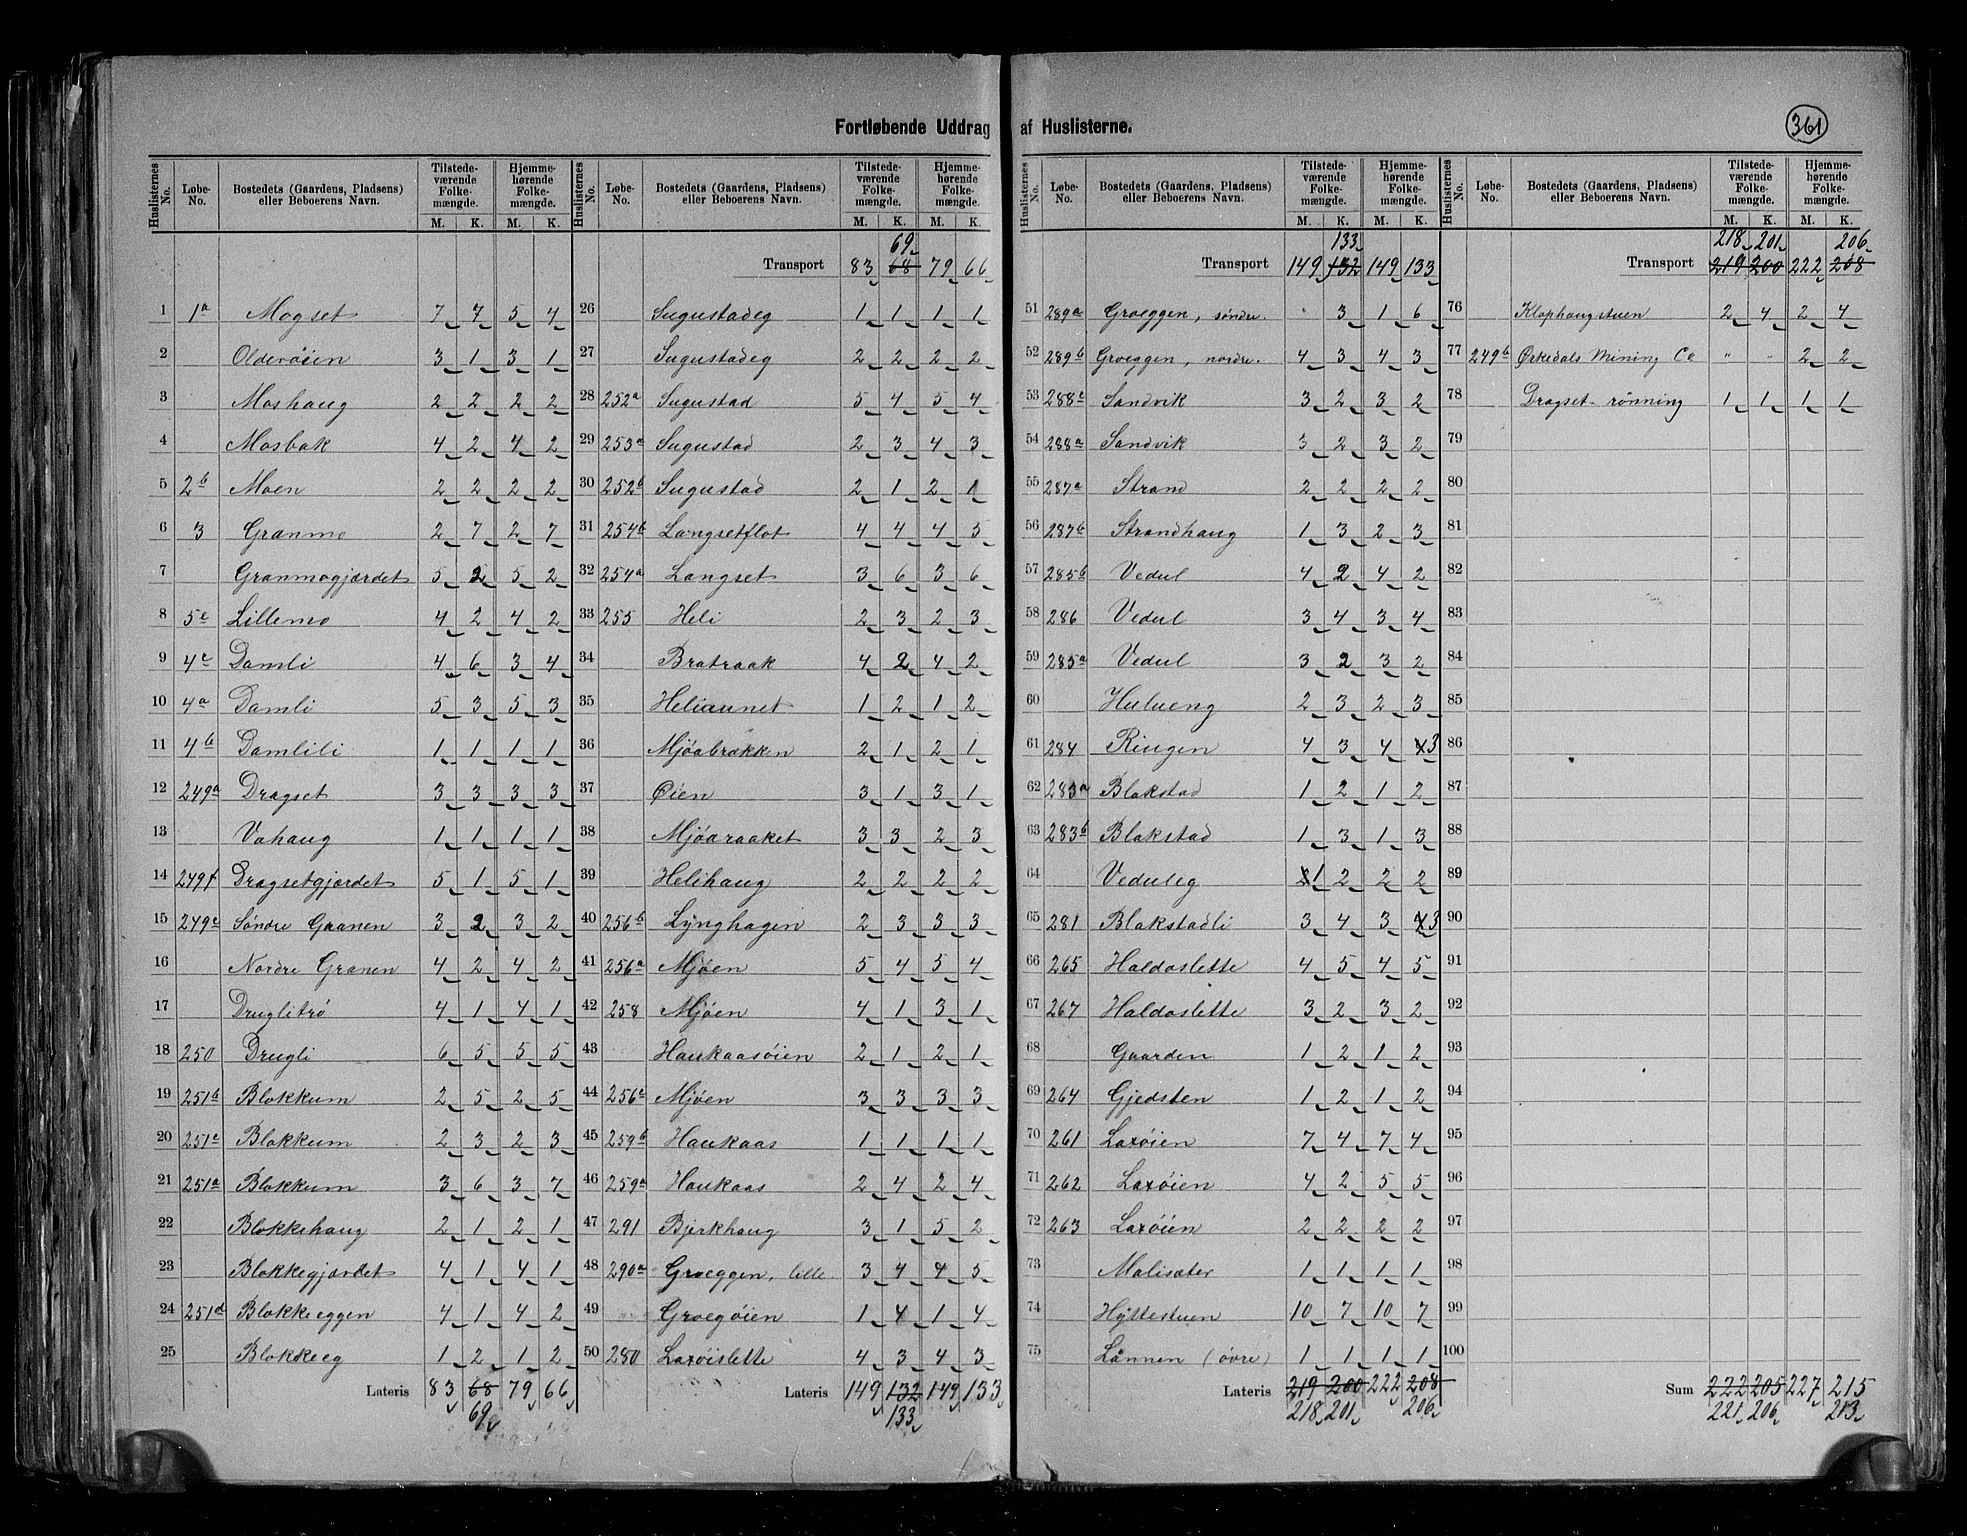 361
Fortløbende Uddrag af Huslisterne.
Huslisternes No. Løbe-No. Bostedets (Gaardens, Pladsens) eller Beboerens Navn. Tilstedeværende Folkemængde. M. K. Hjemmehørende Folkemængde. M. K.
1 1a Mogset 7 7 5 4
2 Olderöien 3 1 3 1
3 Moshaug 2 2 2 2
4 Mosbak 4 2 4 2
5 2b Moen 2 2 2 2
6 3 Granmo 2 7 2 7
7 Granmogjærdet 5 2 5 2
8 5c Lillemo 4 2 4 2
9 4c Damli 4 6 3 4
10 4a Damli 5 3 5 3
11 4b Damlili 1 1 1 1
12 249a Dragset 3 3 3 3
13 Vahaug 1 1 1 1
14 249f Dragsetgjærdet 5 1 5 1
15 249c Söndre Granen 3 2 3 2
16 Nordre Granen 4 2 4 2
17 Druglitrö 4 1 4 1
18 250 Drugli 6 5 5 5
19 251b Blokkum 2 5 2 5
20 251c Blokkum 2 3 2 3
21 251a Blokkum 3 6 3 7
22 Blokkehaug 2 1 2 1
23 Blokkegjærdet 4 1 4 1
24 251d Blokkeeggen 4 1 4 2
25 Blokkeeg 1 2 1 2
Lateris 83 68 79 66
69
Huslisternes No. Løbe-No. Bostedets (Gaardens, Pladsens) eller Beboerens Navn. Tilstedeværende Folkemængde. M. K. Hjemmehørende Folkemængde. M. K.
69
Transport 83 68 79 66
26 Sugustadeg 1 1 1 1
27 Sugustadeg 2 2 2 2
28 252a Sugustad 5 4 5 4
29 253a Sugustad 2 3 4 3
30 252b Sugustad 2 1 2 1
31 254b Langsetflot 4 4 4 5
32 254a Langset 3 6 3 6
33 255 Heli 2 3 2 3
34 Bratraak 4 2 4 2
35 Heliaunet 1 2 1 2
36 Mjöabrækken 2 1 2 1
37 Öien 3 1 3 1
38 Mjöaraaket 3 3 2 3
39 Helihaug 2 2 2 2
40 256b Lynghagen 2 3 3 3
41 256a Mjöen 5 4 5 4
42 258 Mjöen 4 1 3 1
43 Haukaasöien 2 1 2 1
44 256c Mjöen 3 3 3 3
45 259b Haukaas 1 1 1 1
46 259a Haukaas 2 4 2 4
47 291 Bjerkhaug 3 1 5 2
48 290a Groeggen, lille. 3 4 4 5
49 Groegöien 1 4 1 4
50 280 Laxöislette 4 3 4 3
Lateris 149 132 149 133
133
Huslisternes No. Løbe-No. Bostedets (Gaardens, Pladsens) eller Beboerens Navn. Tilstedeværende Folkemængde. M. K. Hjemmehørende Folkemængde. M. K.
133
Transport 149 132 149 133
51 289a Groeggen, söndre. " 3 1 6
52 289b Groeggen, nordre. 4 3 4 3
53 288c Sandvik 3 2 3 2
54 288a Sandvik 3 2 3 2
55 287a Strand 2 2 2 2
56 287b Strandhaug 1 3 2 3
57 285b Vedul 4 2 4 2
58 286 Vedul 3 4 3 4
59 285a Vedul 3 2 3 2
60 Hulueng 2 3 2 3
61 284 Ringen 4 3 4 3
62 283a Blokstad 1 2 1 2
63 283b Blokstad 1 3 1 3
64 Veduleg 2 1 2 2 2
65 281 Blakstadli 3 4 3 3
66 265 Haldoslette 4 5 4 5
67 267 Haldoslette 3 2 3 2
68 Gaarden 1 2 1 2
69 264 Gjedsten 1 2 1 2
70 261 Laxöien 7 4 7 4
71 262 Laxöien 4 2 5 5
72 263 Laxöien 2 2 2 2
73 Malisæter 1 1 1 1
74 Hyttestuen 10 7 10 7
75 Lånnen (övre) 1 1 1 1
Lateris 219 200 222 208
218 201 206
Huslisternes No. Løbe-No. Bostedets (Gaardens, Pladsens) eller Beboerens Navn. Tilstedeværende Folkemængde. M. K. Hjemmehørende Folkemængde. M. K.
218 201 206
Transport 219 200 222 208
76 Klophaugstuen 2 4 2 4
77 249b Ørkedals Mining Co " " 2 2
78 Dragset-rönning 1 1 1 1
79
80
81
82
83
84
85
86
87
88
89
90
91
92
93
94
95
96
97
98
99
100
Sum 222 205 227 215
221 206 213